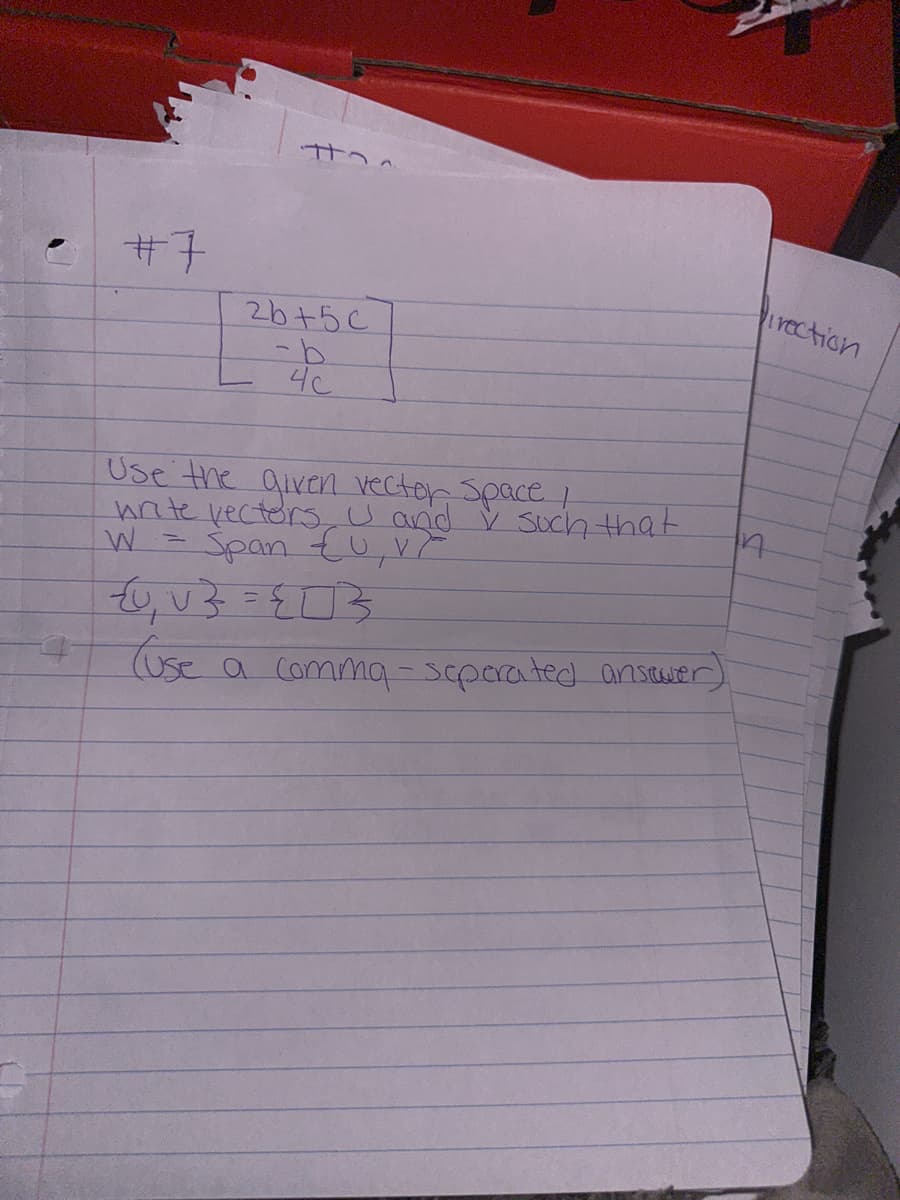 #7
2b+5c
-b
4c
Use the given vector space,
write vectors U and V such that
W = Span {U, V}
{U, V} = {□}
(use a comma-seperated ansewer)
Direction
n